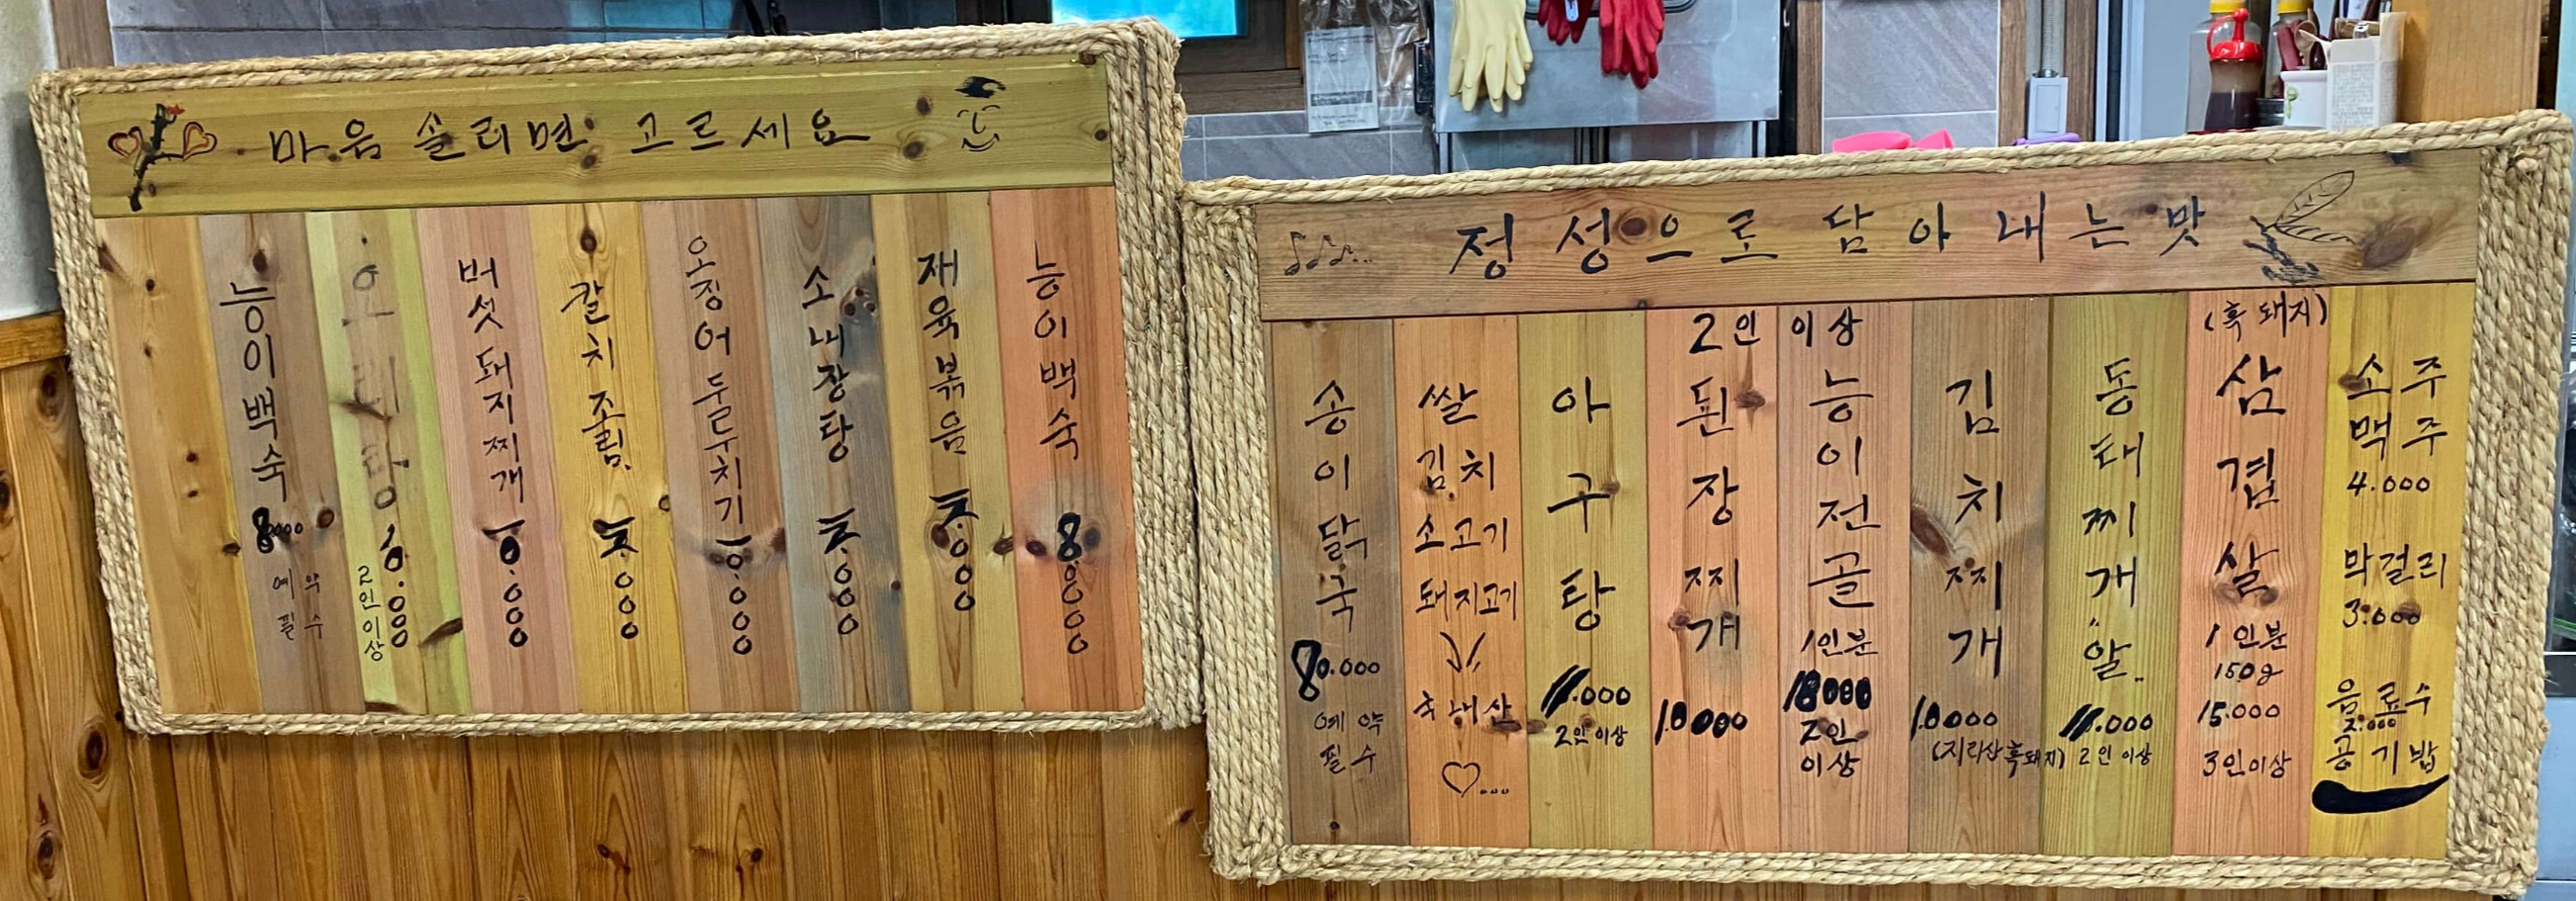 마음 솔리면 고르세요
능이백숙
8000
예약
필수
오리탕
2인이상
버섯돼지찌개
갈치조림.
오징어두루치기
소내장탕
재육볶음
능이백숙
정성으로 담아내는맛
송이닭국
80.000
예약
필수
쌀
김치
소고기
돼지고기
국내산
아구탕
11.000
2인이상
2인 이상
된장찌개
10000
능이전골
1인분
18000
2인
이상
김치찌개
10000
(지리산흑돼지)
동태찌개"알..
11.000
2인이상
(흑돼지)
삼겹살
1인분
150g
15.000
3인이상
소주
맥주
4.000
막걸리
3.000
음료수
2.000
공기밥